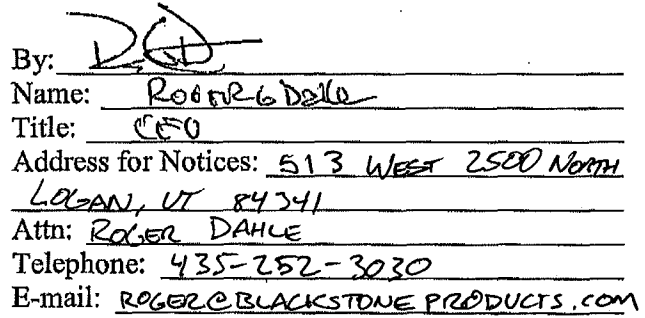 By:
Name: ROGER G Dahle
Title: CEO
Address for Notices: 513 WEST 2500 NORTH
LOGAN, UT 84341
Attn: ROGER DAHLE
Telephone: 435-252-3030
E-mail: ROGER@BLACKSTONEPRODUCTS.COM